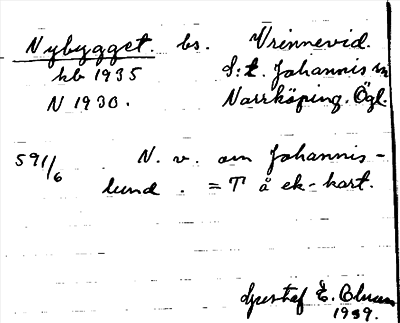 Nybygget. bs. Vrinnevid.
kb 1935 S:t. Johannis sn
N 1930. Norrköping. Ögl.
591/6 N. v. om Johannis-
lund. = T å ek-kart.
Gustaf E.
1939.